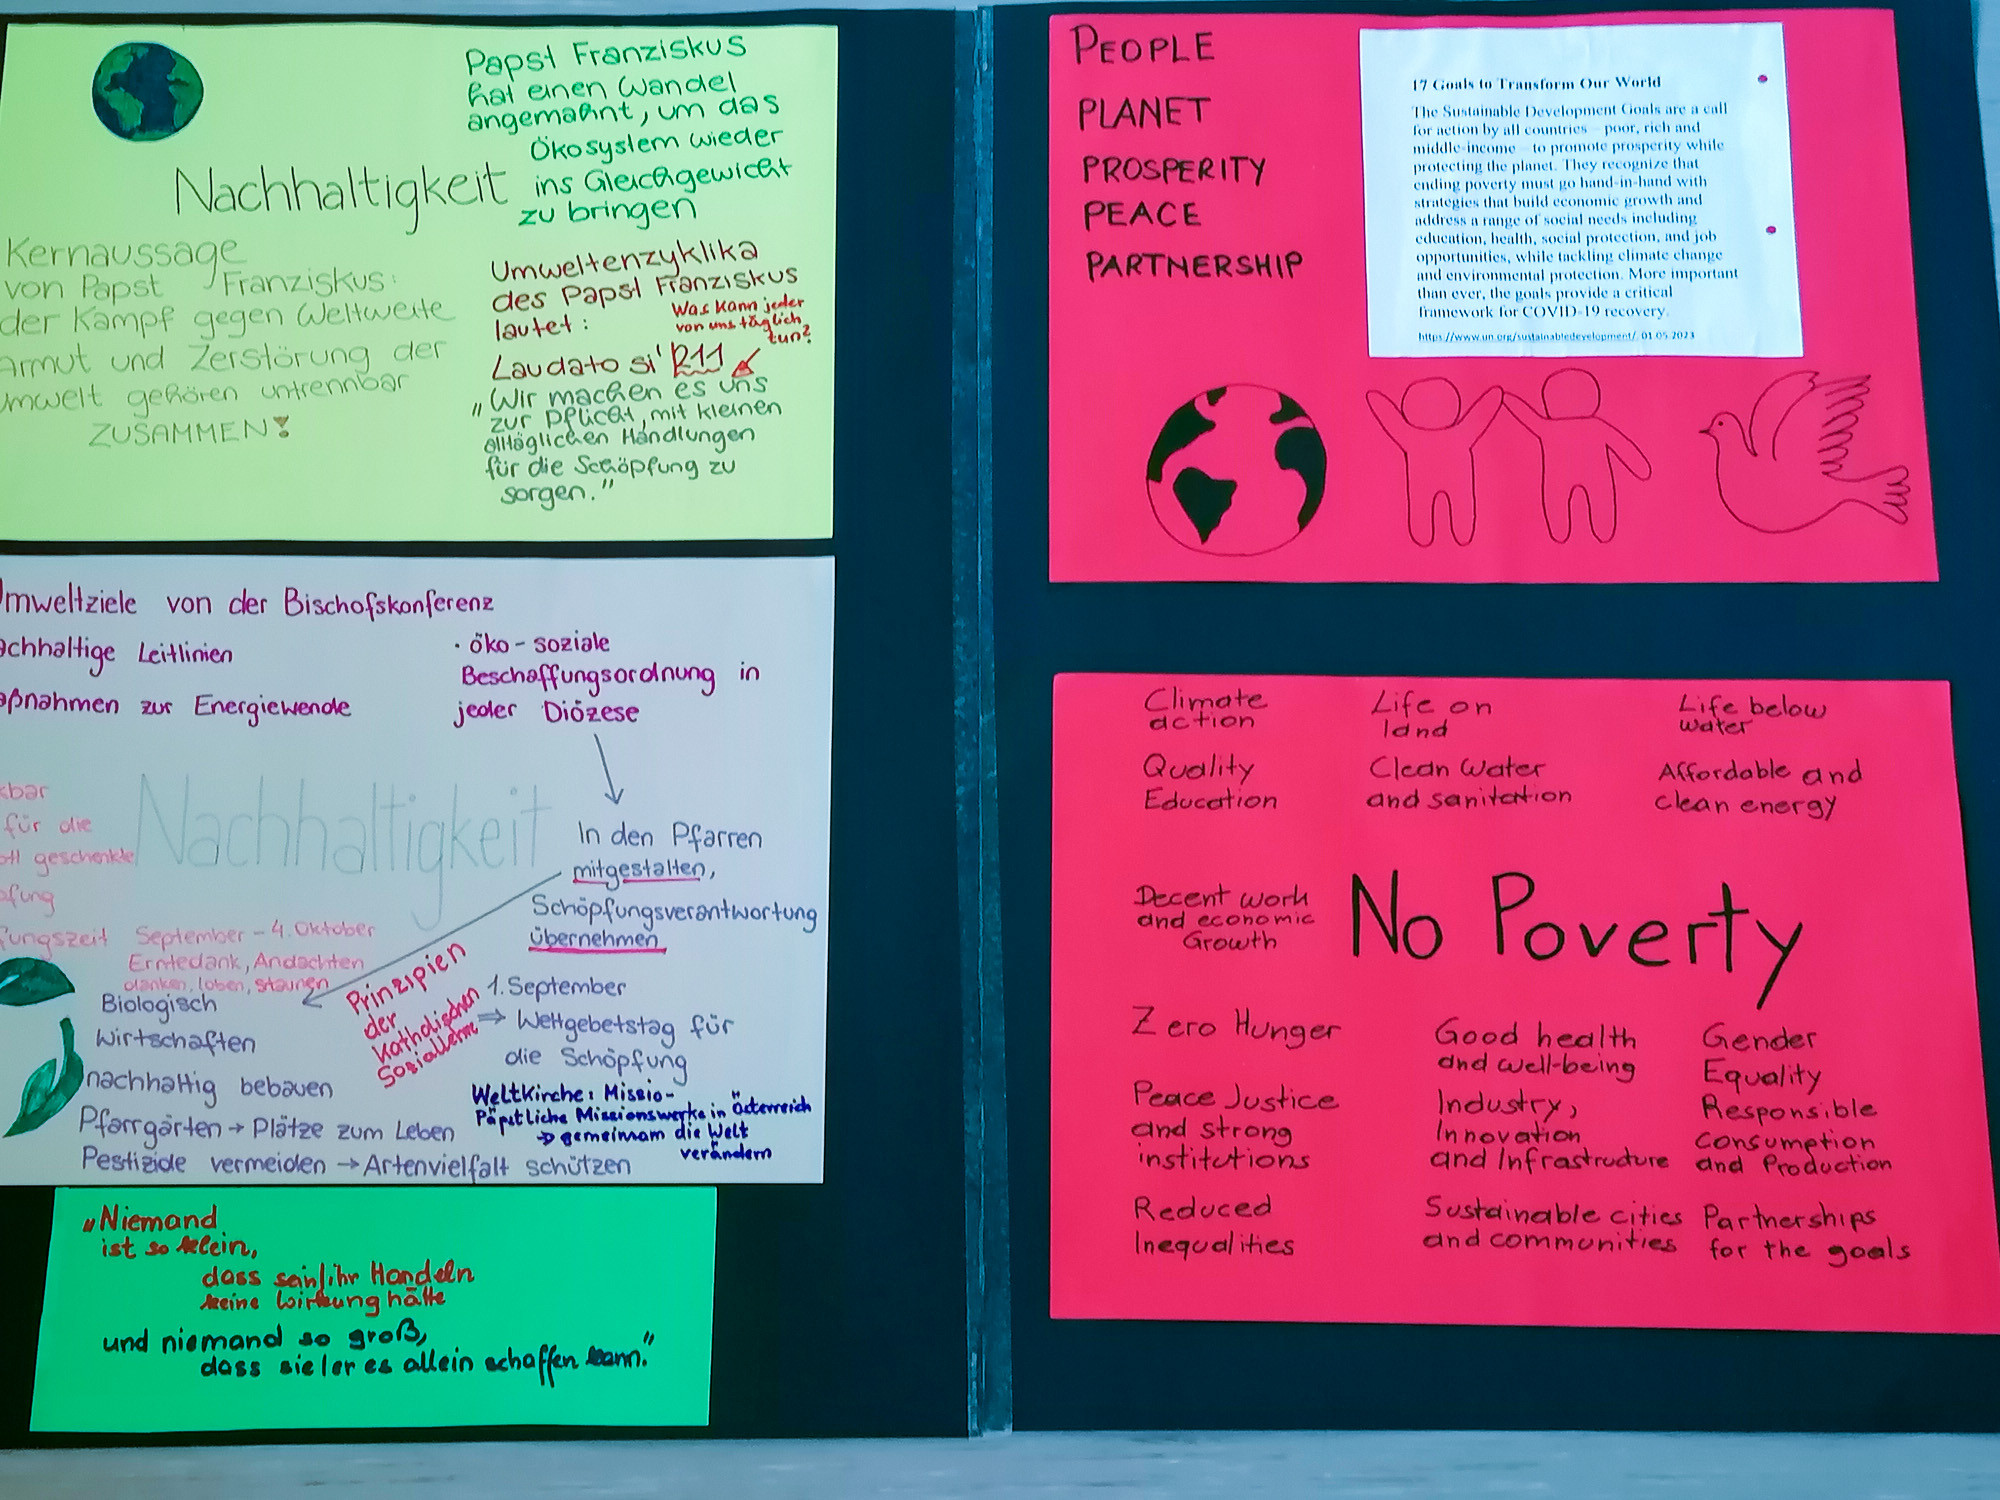 Nachhaltigkeit
Papst Franziskus
hat einen Wandel
angemahnt, um das
Ökosystem wieder
ins Gleichgewicht
zu bringen
Kernaussage
von Papst Franziskus:
der Kampf gegen Weltweite
Armut und Zerstörung der
Umwelt gehören untrennbar
ZUSAMMEN!
Umweltenzyklika
des Papst Franziskus
lautet:
Was kann jeder
von uns täglich
tun?
Laudato si' 211
„Wir machen es uns
zur Pflicht, mit kleinen
alltäglichen Handlungen
für die Schöpfung zu
sorgen."
Umweltziele von der Bischofskonferenz
achhaltige Leitlinien
aßnahmen zur Energiewende
· öko-soziale
Beschaffungsordnung in
jeder Diözese
Nachhaltigkeit
für die
geschenkte
September - 4. Oktober
Erntedank, Andachten
danken, loben, staunen
In den Pfarren
mitgestalten,
Schöpfungsverantwortung
übernehmen
Prinzipien
der
Katholischen
Soziallehre
1. September
⇒ Weltgebetstag für
die Schöpfung
Biologisch
Wirtschaften
nachhaltig bebauen
Pfarrgärten → Plätze zum Leben
Pestizide vermeiden → Artenvielfalt schützen
Weltkirche: Missio-
Päpstliche Missionswerke in Österreich
→ gemeinsam die Welt
verändern
„Niemand
ist so klein,
dass sein/ihr Handeln
keine Wirkung hätte
und niemand so groß,
dass sie/er es allein schaffen kann."
PEOPLE
PLANET
PROSPERITY
PEACE
PARTNERSHIP
17 Goals to Transform Our World
The Sustainable Development Goals are a call
for action by all countries – poor, rich and
middle-income – to promote prosperity while
protecting the planet. They recognize that
ending poverty must go hand-in-hand with
strategies that build economic growth and
address a range of social needs including
education, health, social protection, and job
opportunities, while tackling climate change
and environmental protection. More important
than ever, the goals provide a critical
framework for COVID-19 recovery.
https://www.un.org/sustainabledevelopment/, 01.05.2023
Climate
action
Life on
land
Life below
water
Quality
Education
Clean Water
and sanitation
Affordable and
clean energy
Decent work
and economic
Growth
No Poverty
Zero Hunger
Good health
and well-being
Gender
Equality
Peace Justice
and strong
institutions
Industry,
Innovation
and Infrastructure
Responsible
consumption
and Production
Reduced
Inequalities
Sustainable cities
and communities
Partnerships
for the goals